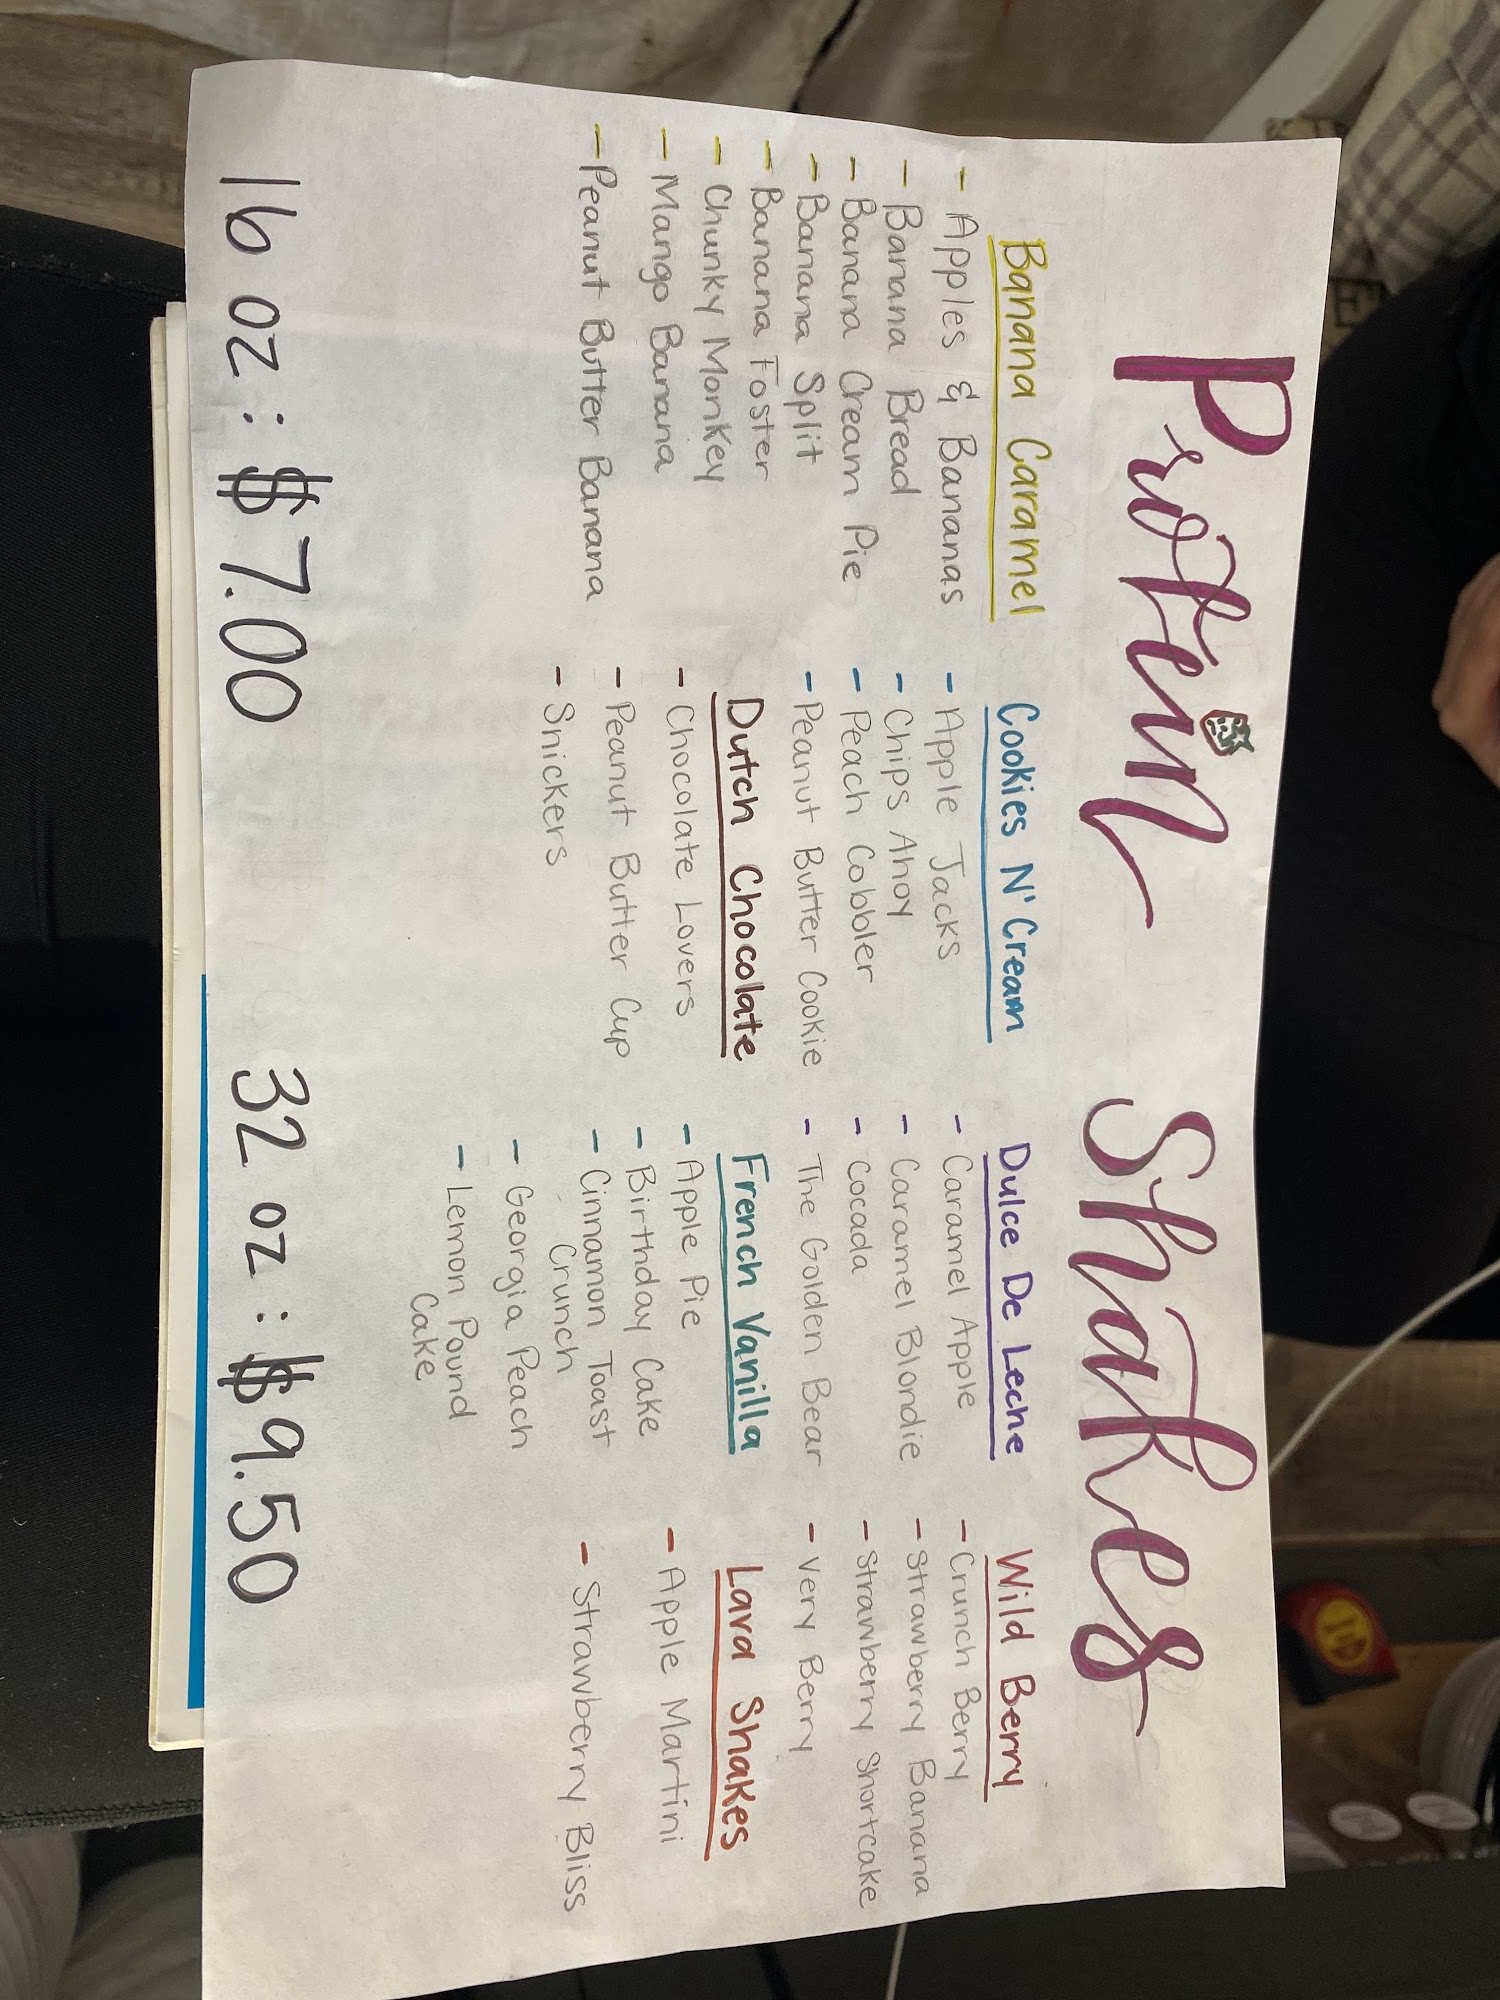 Protein Shakes
Banana Caramel
- Apples & Bananas
- Banana Bread
- Banana Cream Pie
- Banana Split
- Banana Foster
- Chunky Monkey
- Mango Banana
- Peanut Butter Banana
Cookies N' Cream
- Apple Jacks
- Chips Ahoy
- Peach Cobbler
- Peanut Butter Cookie
Dutch Chocolate
- Chocolate Lovers
- Peanut Butter Cup
- Snickers
Dulce De Leche
- Caramel Apple
- Caramel Blondie
- Cocada
- The Golden Bear
French Vanilla
- Apple Pie
- Birthday Cake
- Cinnamon Toast
Crunch
- Georgia Peach
- Lemon Pound
Cake
Wild Berry
- Crunch Berry
- Strawberry Banana
- Strawberry Shortcake
- Very Berry
Lava Shakes
- Apple Martini
- Strawberry Bliss
16 oz : $7.00
32 oz : $9.50